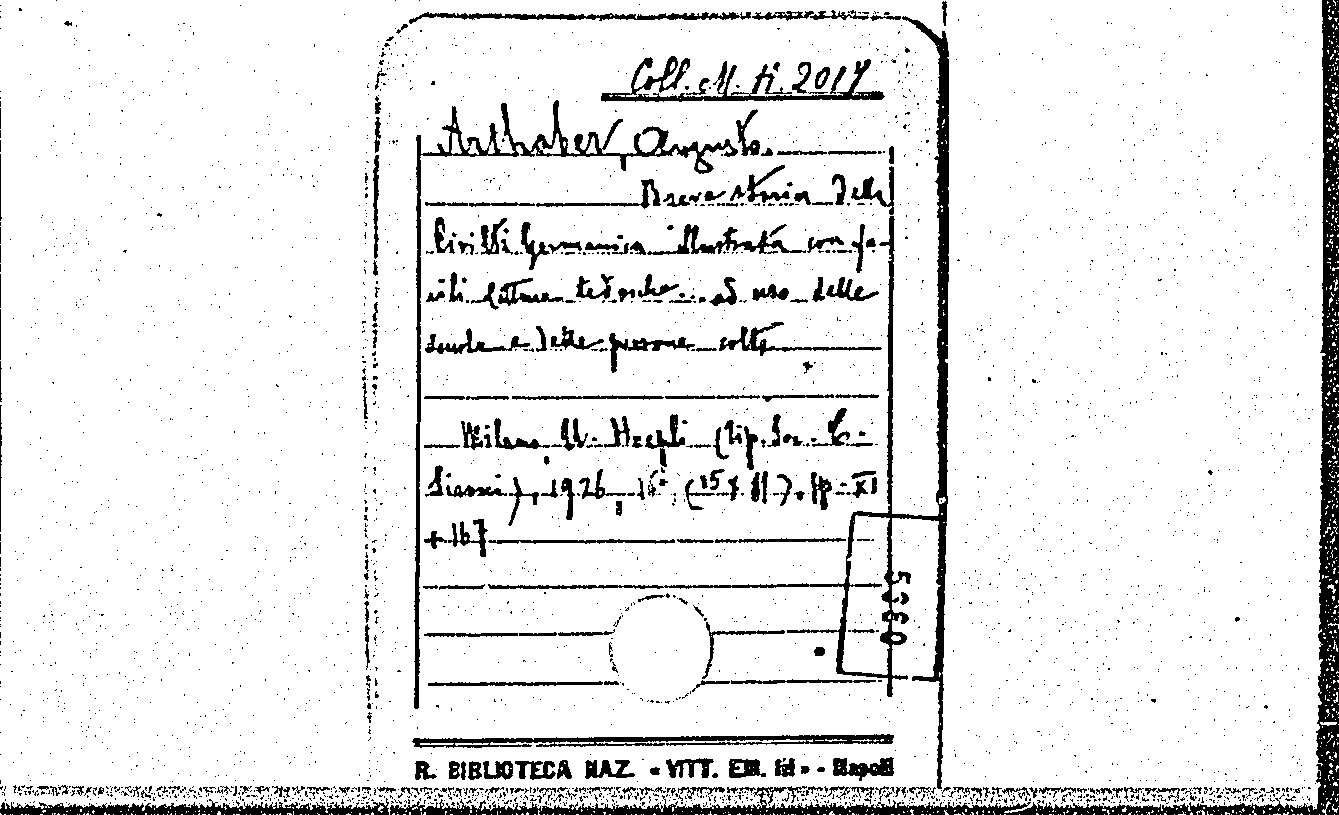 Coll. M. ti. 2017
Arthaber, Augusto.
Breve storia della
Civiltà Germanica illustrata con fa-
cili letture tedesche... ad uso delle
scuole e delle persone colte
Milano, U. Hoepli (Tip. Soc. C.
), 1926, 16°, (15 x 11). pp. XI
+ 167
5360
R. BIBLIOTECA NAZ. « VITT. EM. III » - Napoli